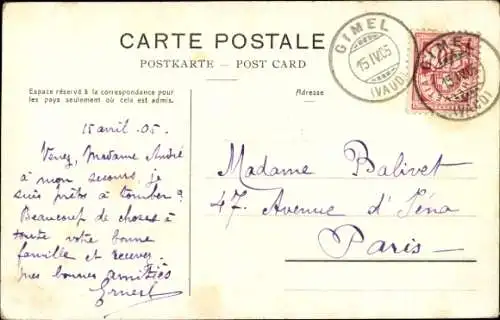 CARTE POSTALE
POSTKARTE — POST CARD
GIMEL
15 IV 05
(VAUD)
GIMEL
(VAUD)
Espace réservé à la correspondance pour
les pays seulement où cela est admis.
Adresse
15 avril. 05.
Venez, Madame André
à mon secours, je
suis prêts à tomber?
Beaucoup de choses à
toute votre bonne
famille et recevez
mes bonnes amitiés
Ernest
Madame Balivet
47. Avenue d'Iéna
Paris